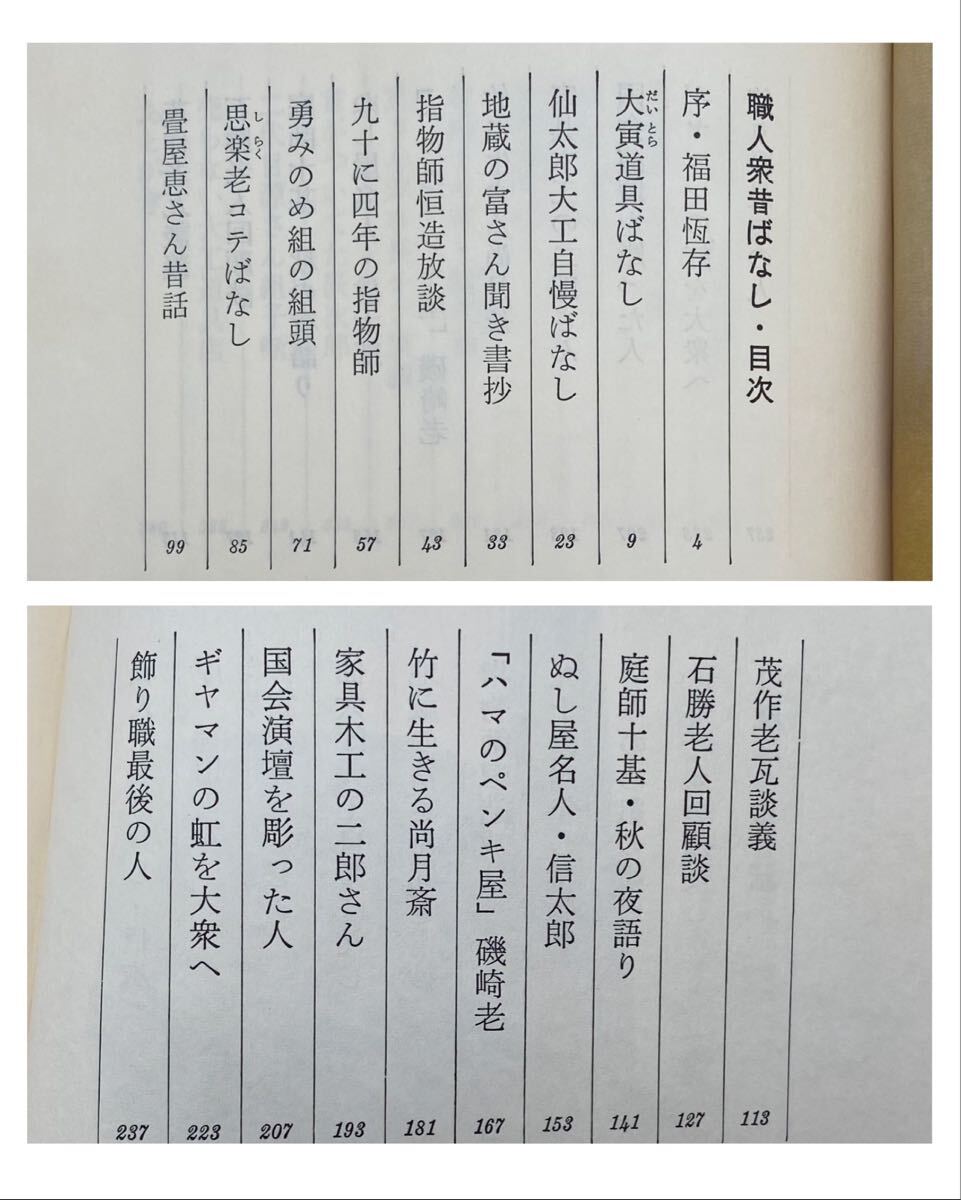 職人衆昔ばなし・目次
序・福田恆存 4
大寅道具ばなし 9
だいとら
仙太郎大工自慢ばなし 23
地蔵の富さん聞き書抄 33
指物師恒造放談 43
九十に四年の指物師 57
勇みのめ組の組頭 71
思楽老コテばなし 85
しらく
畳屋恵さん昔話 99
茂作老瓦談義 113
石勝老人回顧談 127
庭師十基・秋の夜語り 141
ぬし屋名人・信太郎 153
「ハマのペンキ屋」磯崎老 167
竹に生きる尚月斎 181
家具木工の二郎さん 193
国会演壇を彫った人 207
ギヤマンの虹を大衆へ 223
飾り職最後の人 237